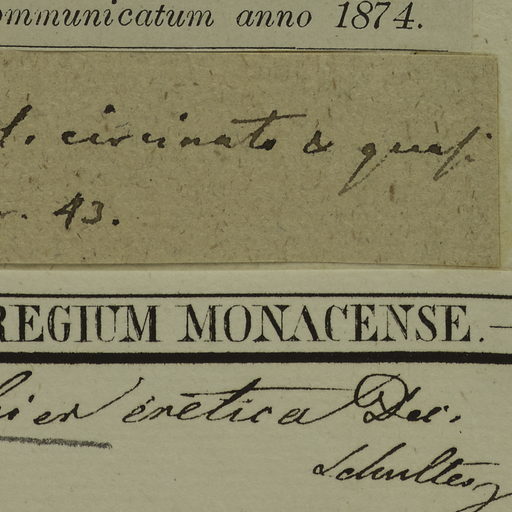 ommunicatum anno 1874.
l. circinato & quasi
r. 43.
REGIUM MONACENSE.—
ier eretica Dec.
Schultes